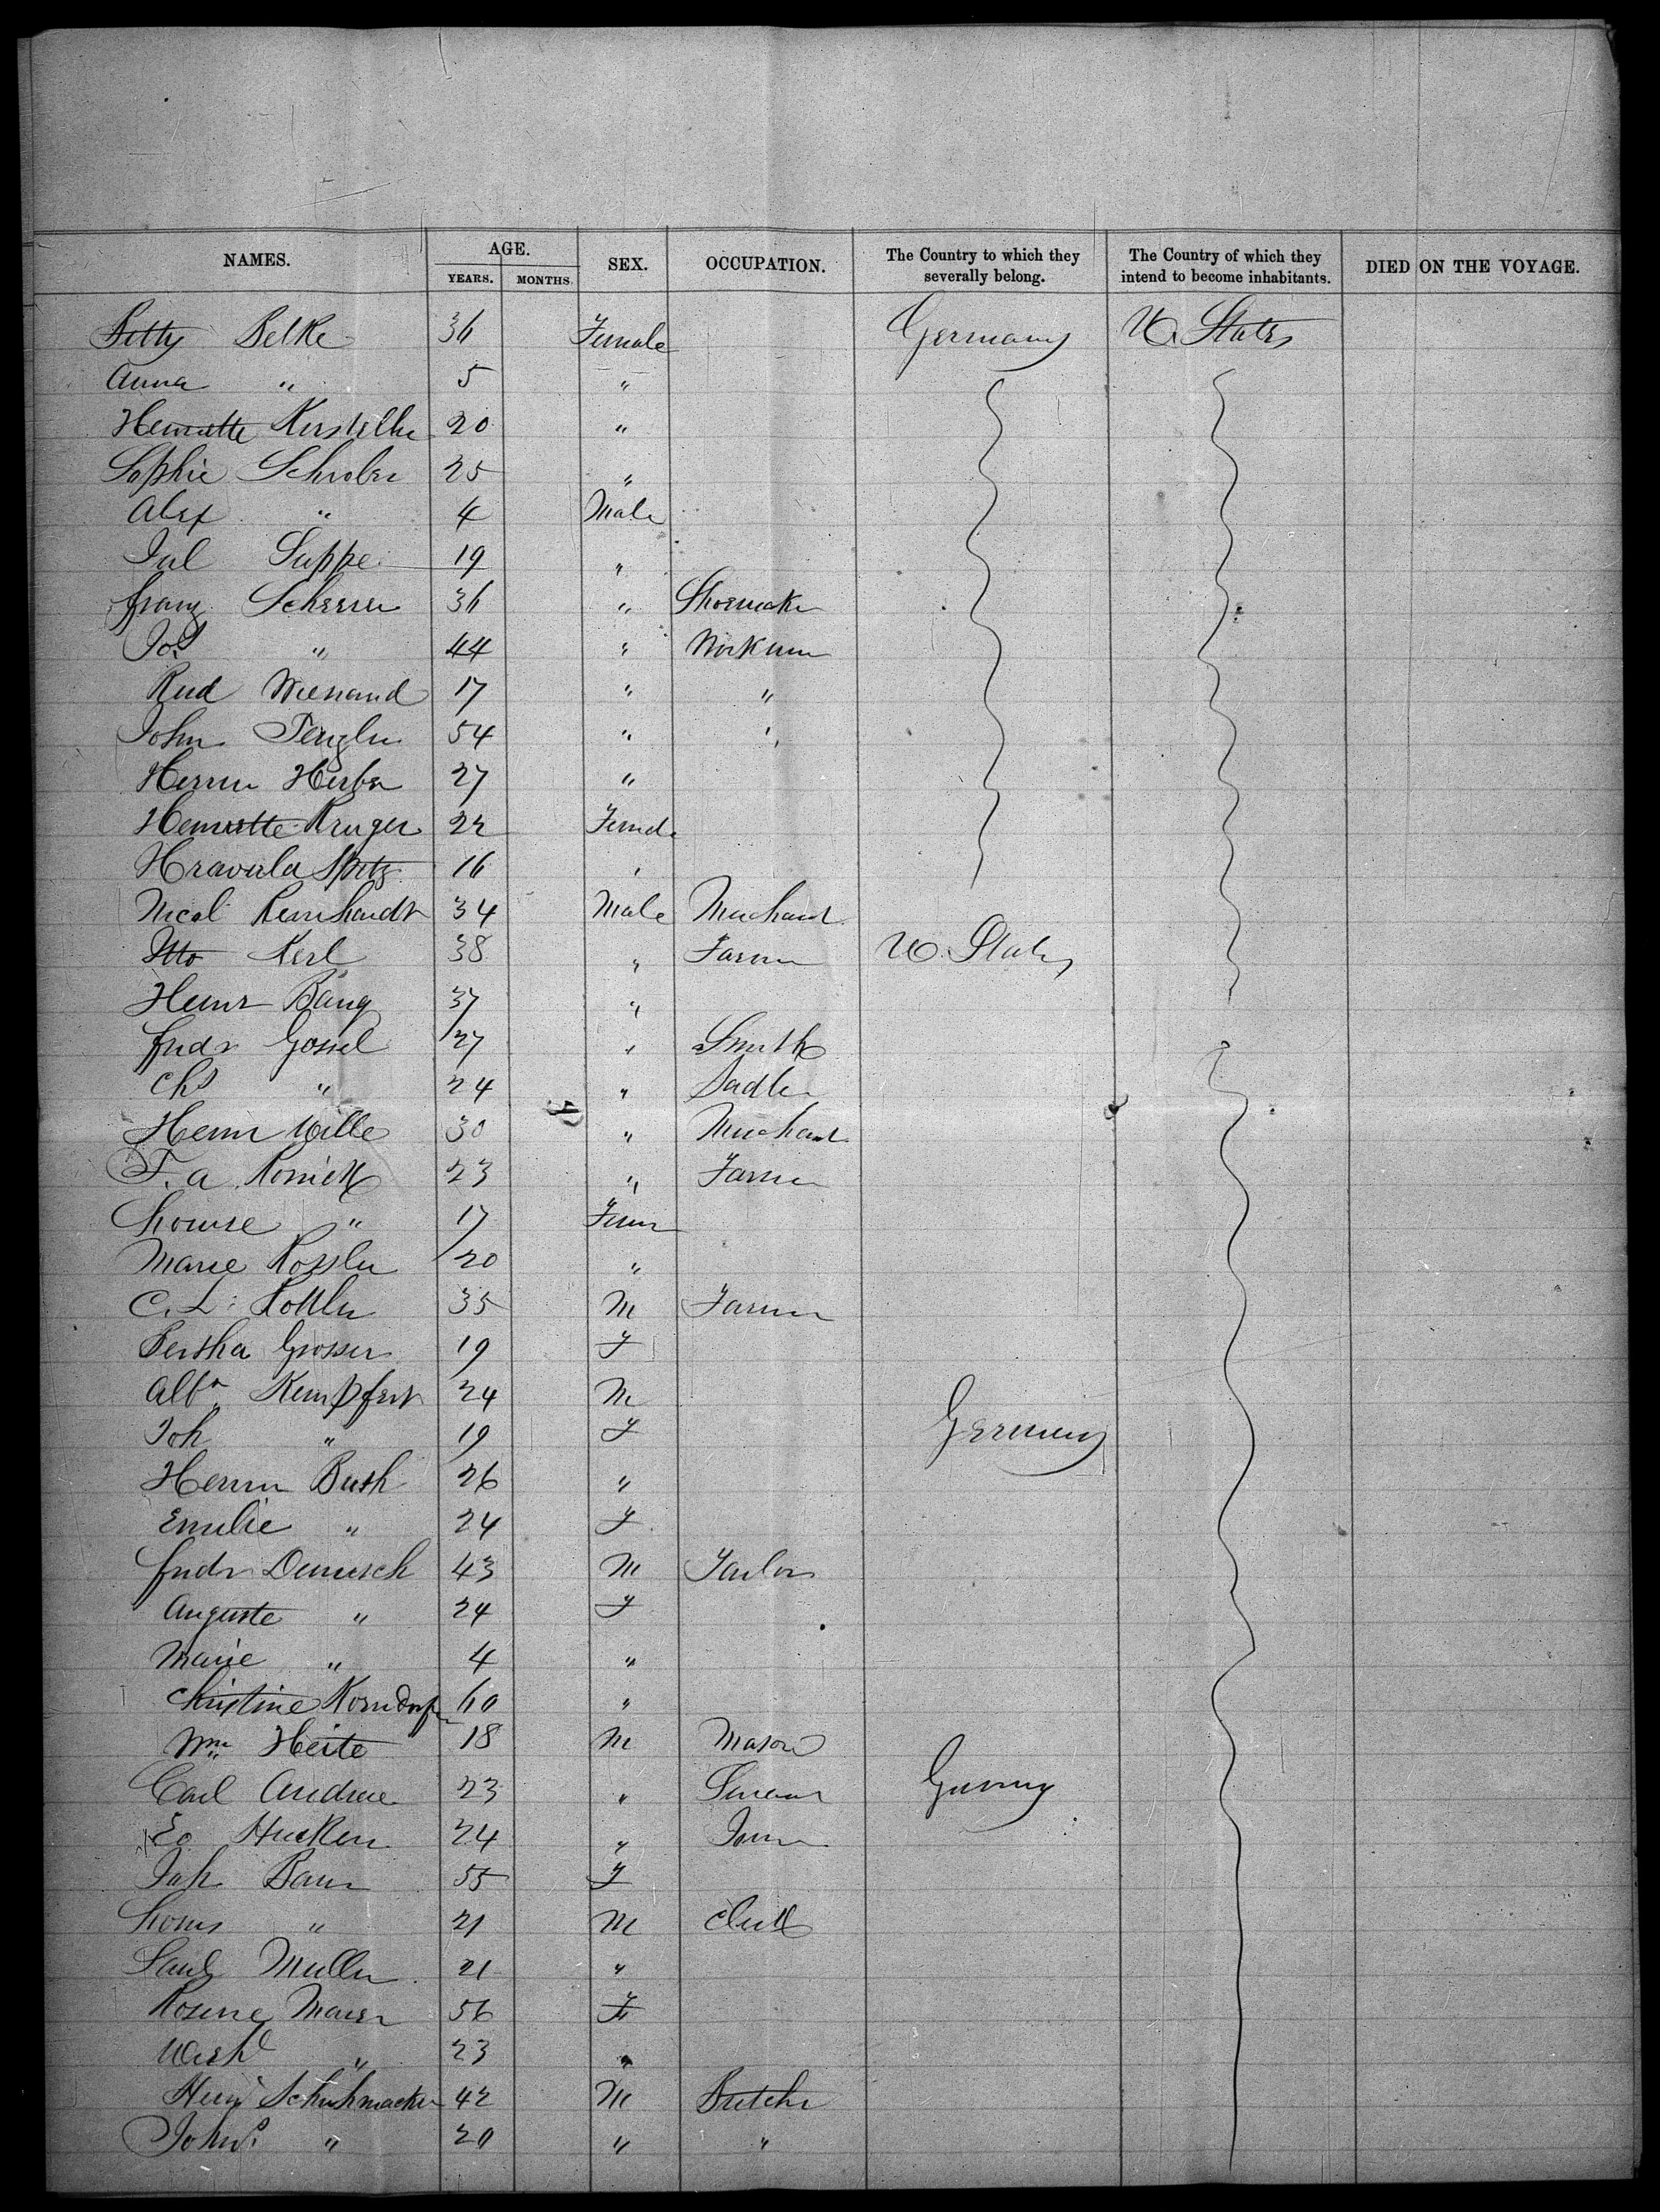 NAMES. AGE. SEX. OCCUPATION. The Country to which they severally belong. The Country of which they intend to become inhabitants. DIED ON THE VOYAGE.
YEARS. MONTHS.
Betty Belke 36 Female Germany U. States
Anna " 5 "
Henriette 20 "
Sophie Schrober 25 "
Alex " 4 Male
Jul Suppe 19 "
Franz Scherrer 36 " Shoemaker
Jos " 44 " Workmn
Rud Wienand 17 " "
John 54 " "
Hermn Herber 27 "
Henriette Kruger 22 Female
Spitz 16 "
Nicol Reinhardt 34 Male Merchant
Otto Kerl 38 " Farmer U. States
Heinr Bang 37 "
Friedr Gossel 27 " Smith
Chs " 24 " Sadler
Hermn Wille 30 " Merchant
F. A. 23 " Farmer
Louise " 17 Fem
Marie Rossler 20 "
C. L. 35 M Farmer
Bertha Grosser 19 F
Albt Kempfert 24 M
Joh " 19 F Germany
Hermn Bush 26 "
Emilie " 24 F
Friedr 43 M Tailor
Auguste " 24 F
Marie " 4 "
Christine Korndorfer 60 "
Wm Heite 18 M Mason
Carl Andreae 23 " Servant Germany
Ed 24 "
Joh Baur 55 F
Louis " 21 M Clerk
Paul Muller 21 "
Rosine Maier 56 F
" 23 "
Heinr Schuhmacher 42 M Butcher
John " 20 " "